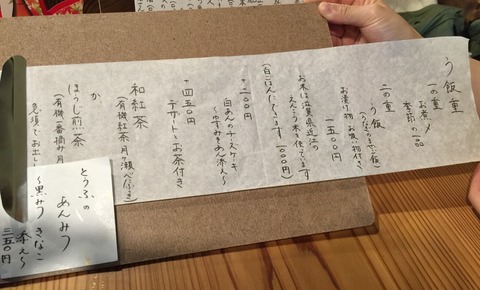 う飯重
一の重
お煮〆
季節の一品
二の重
う飯
(うなぎのまぜ飯)
お漬け物 お吸い物付き
一五〇〇円
お米は滋賀県近江の
を使っています
(白ごはんにできます。一〇〇〇円)
+二〇〇円
白あんのチーズケーキ
〜ゆずみそあん添え〜
+四五〇円
デザートとお茶付き
和紅茶
(有機紅茶月ヶ瀬べにふうき)
か
ほうじ煎茶
(有機一番摘み月
急須でお出し
とうふの
あんみつ
〜黒みつ きなこ
添え〜
三五〇円